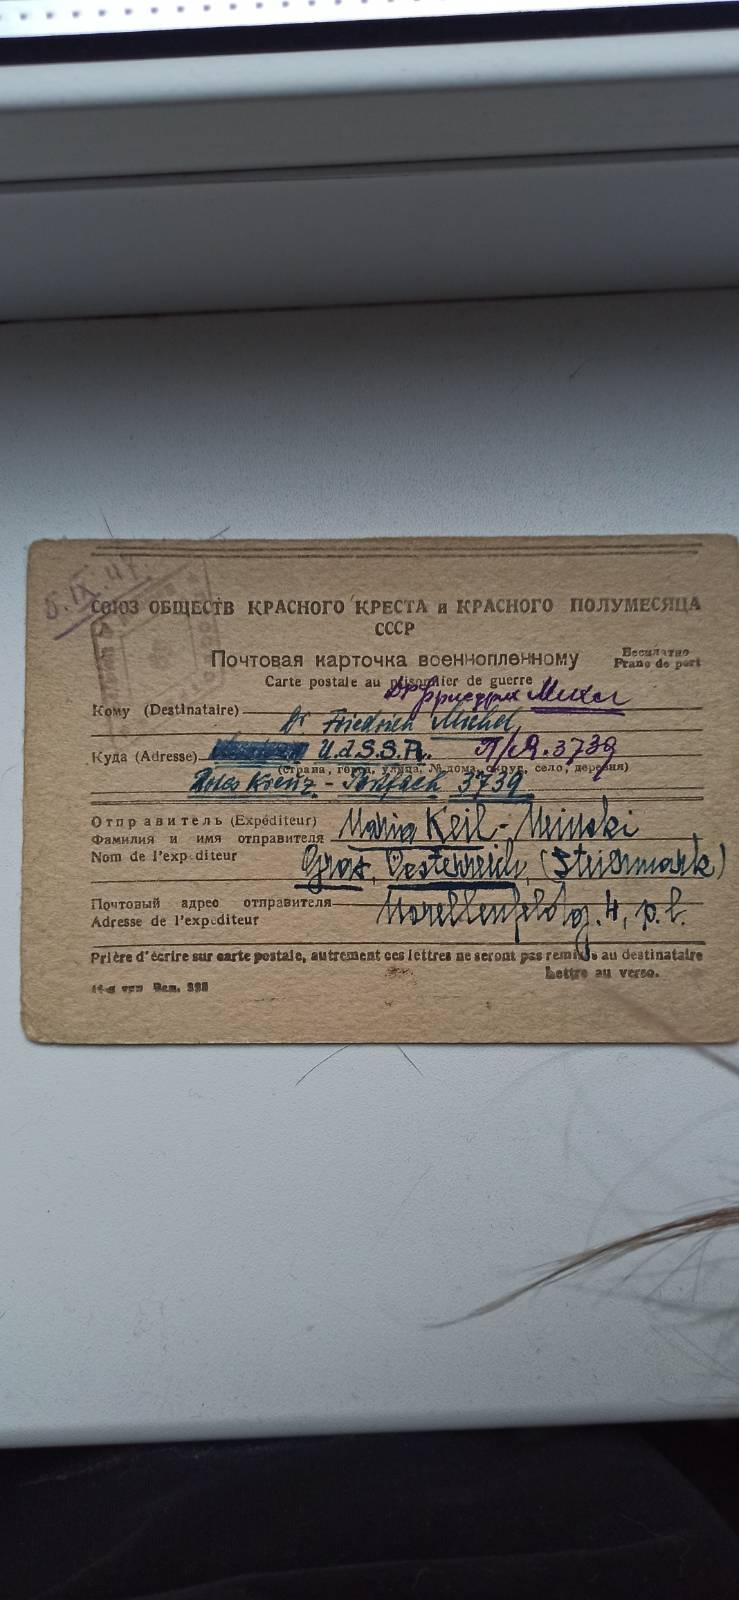 5.IX.47.
СОЮЗ ОБЩЕСТВ КРАСНОГО КРЕСТА и КРАСНОГО ПОЛУМЕСЯЦА
СССР
Почтовая карточка военнопленному
Бесплатно
Carte postale au prisonnier de guerre
Franc de port
Др Фридрих Михел
Кому (Destinataire)
Dr Friedrich Michel
Куда (Adresse) U.d.S.S.R. П/Я. 3739
(Страна, город, улица, № дома, округ, село, деревня)
Rotes Kreuz - Postfach 3739
Отправитель (Expéditeur)
Фамилия и имя отправителя Maria Keil-
Nom de l'expéditeur Graz, Oesterreich, (Steiermark)
Почтовый адрес отправителя Morellenfeldg. 4, p. l.
Adresse de l'expéditeur
Prière d'écrire sur carte postale, autrement ces lettres ne seront pas remises au destinataire
Lettre au verso.
14-я тип Зак.